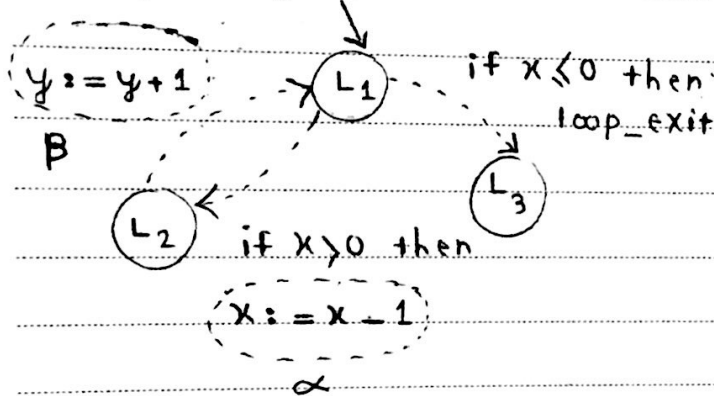 y := y + 1
β
L₁
if x ≤ 0 then
loop_exit
L₂
L₃
if x > 0 then
x := x - 1
α